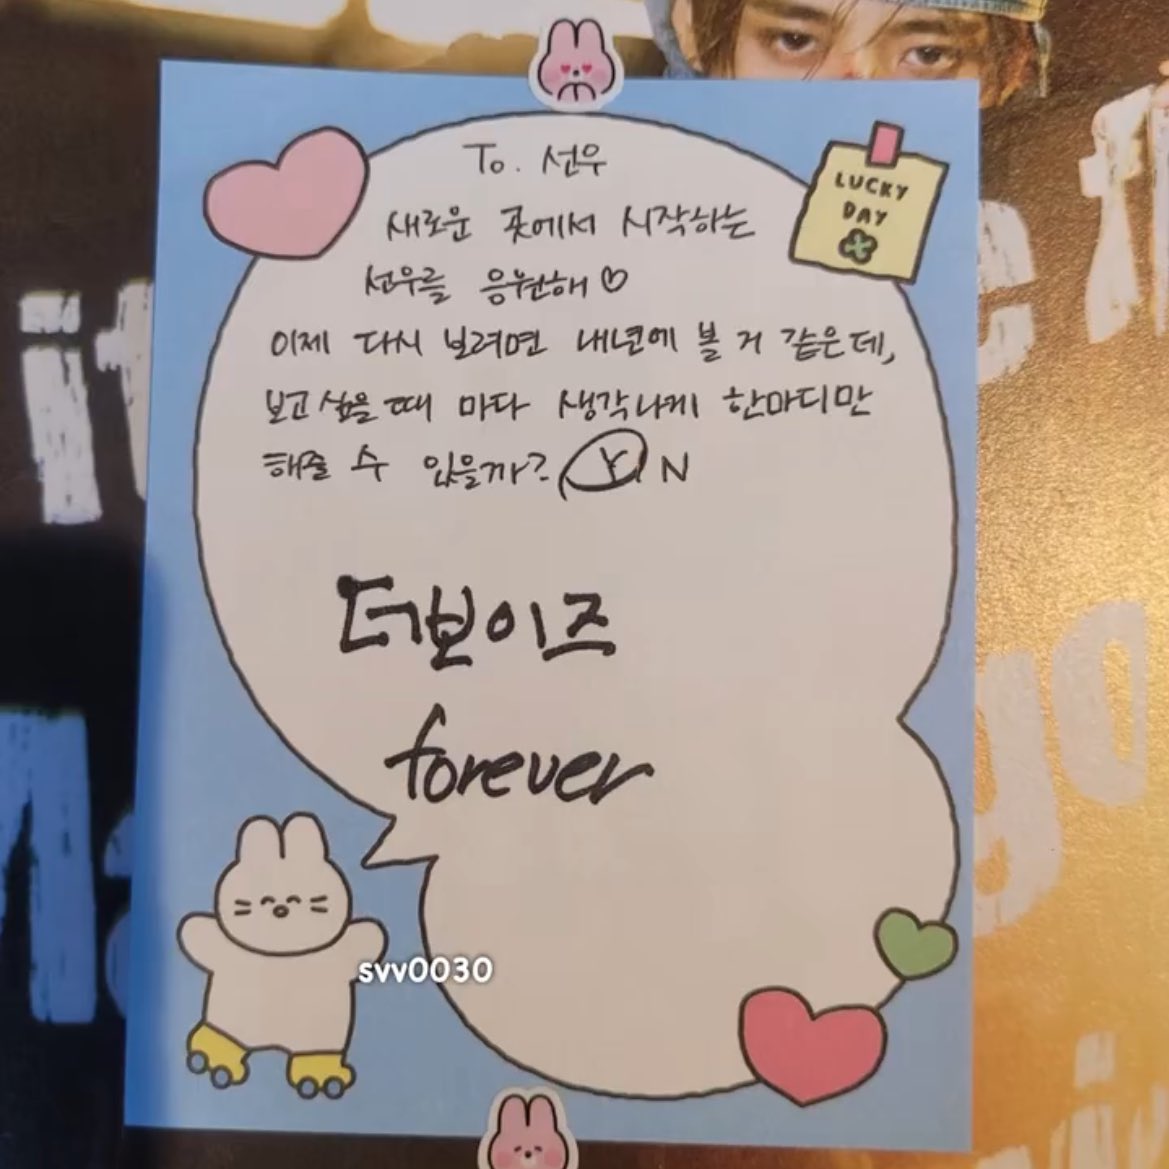 To. 선우
새로운 곳에서 시작하는
선우를 응원해♡
이제 다시 보려면 내년에 볼 거 같은데,
보고싶을 때 마다 생각나게 한마디만
해줄 수 있을까? Y N
더보이즈
forever
LUCKY
DAY
svv0030